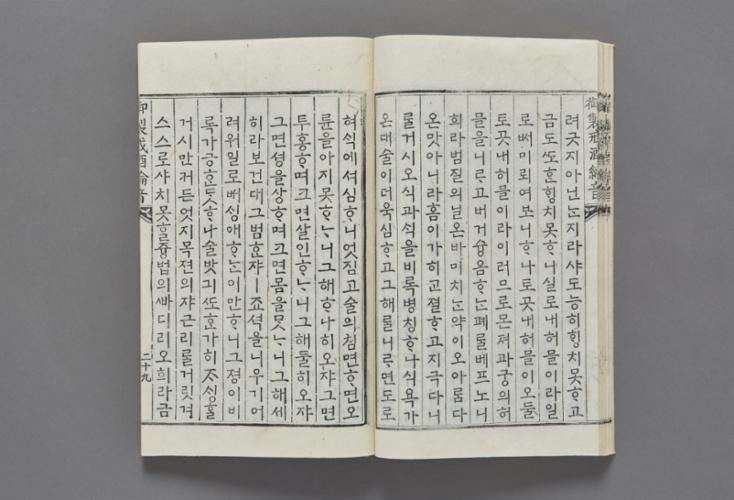 려긋지아닌ᄂᆞᆫ지라샤도능히ᄒᆡᆼ치못ᄒᆞ고
금도ᄯᅩᄒᆞᆫᄒᆡᆼ치못ᄒᆞ니실로내허믈이라일
로ᄡᅥ미뤼여보니ᄒᆞ나토곳내허믈이오둘
토곳내허믈이라이러므로몬져파궁의허
믈을니ᄅᆞ고버거음ᄒᆞᄂᆞᆫ폐ᄅᆞᆯ베프노니
희라범질의닐온바미치ᄂᆞᆫ약이오아ᄅᆞᆷ다
온맛아니라홈이가히고졀ᄒᆞ고지극다니
ᄅᆞᆯ거시오식과ᄉᆡᆨ을비록병칭ᄒᆞ나식욕가
온대술이더옥심ᄒᆞ고그해ᄅᆞᆯ니ᄅᆞ면도로
御製戒酒綸音
혀ᄉᆡᆨ에셔심ᄒᆞ니엇짐고술의침면ᄒᆞ면오
륜을아지못ᄒᆞᄂᆞ니그해ᄒᆞ나히오쟈그면
투홍ᄒᆞ며크면살인ᄒᆞᄂᆞ니그해둘히오쟈
그면셩을샹ᄒᆞ며크면몸을ᄆᆞᆺᄂᆞ니그해세
히라보건대그범ᄒᆞᆫ쟈ㅣ죠셕을니우기어
려워일로ᄡᅥᄉᆡᆼ애ᄒᆞᄂᆞᆫ이만ᄒᆞ니그졍이비
록가긍ᄒᆞᆫᄃᆞᆺᄒᆞ나술밧긔ᄯᅩᄒᆞᆫ가히ᄌᆞᄉᆡᆼᄒᆞᆯ
거시만커든엇지목젼의쟈근리ᄅᆞᆯ거릿겨
스스로샤치못ᄒᆞᆯ즁법의ᄲᅡ디리오희라금
御製戒酒綸音
二十九